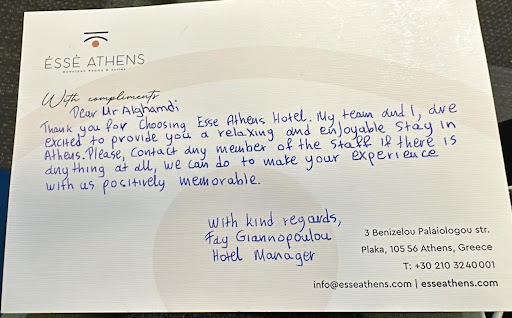 ÉSSÈ ATHENS
With compliments
Dear Mr Alghamdi
Thank you for Choosing Esse Athens Hotel. My team and I, are
excited to provide you a relaxing and enjoyable stay in
Athens. Please, Contact any member of the staff if there is
anything at all, we can do to make your experience
with us positively memorable.
With kind regards,
Fay Giannopoulou
Hotel Manager
3 Benizelou Palaiologou str.
Plaka, 105 56 Athens, Greece
T: +30 210 3240001
info@esseathens.com | esseathens.com